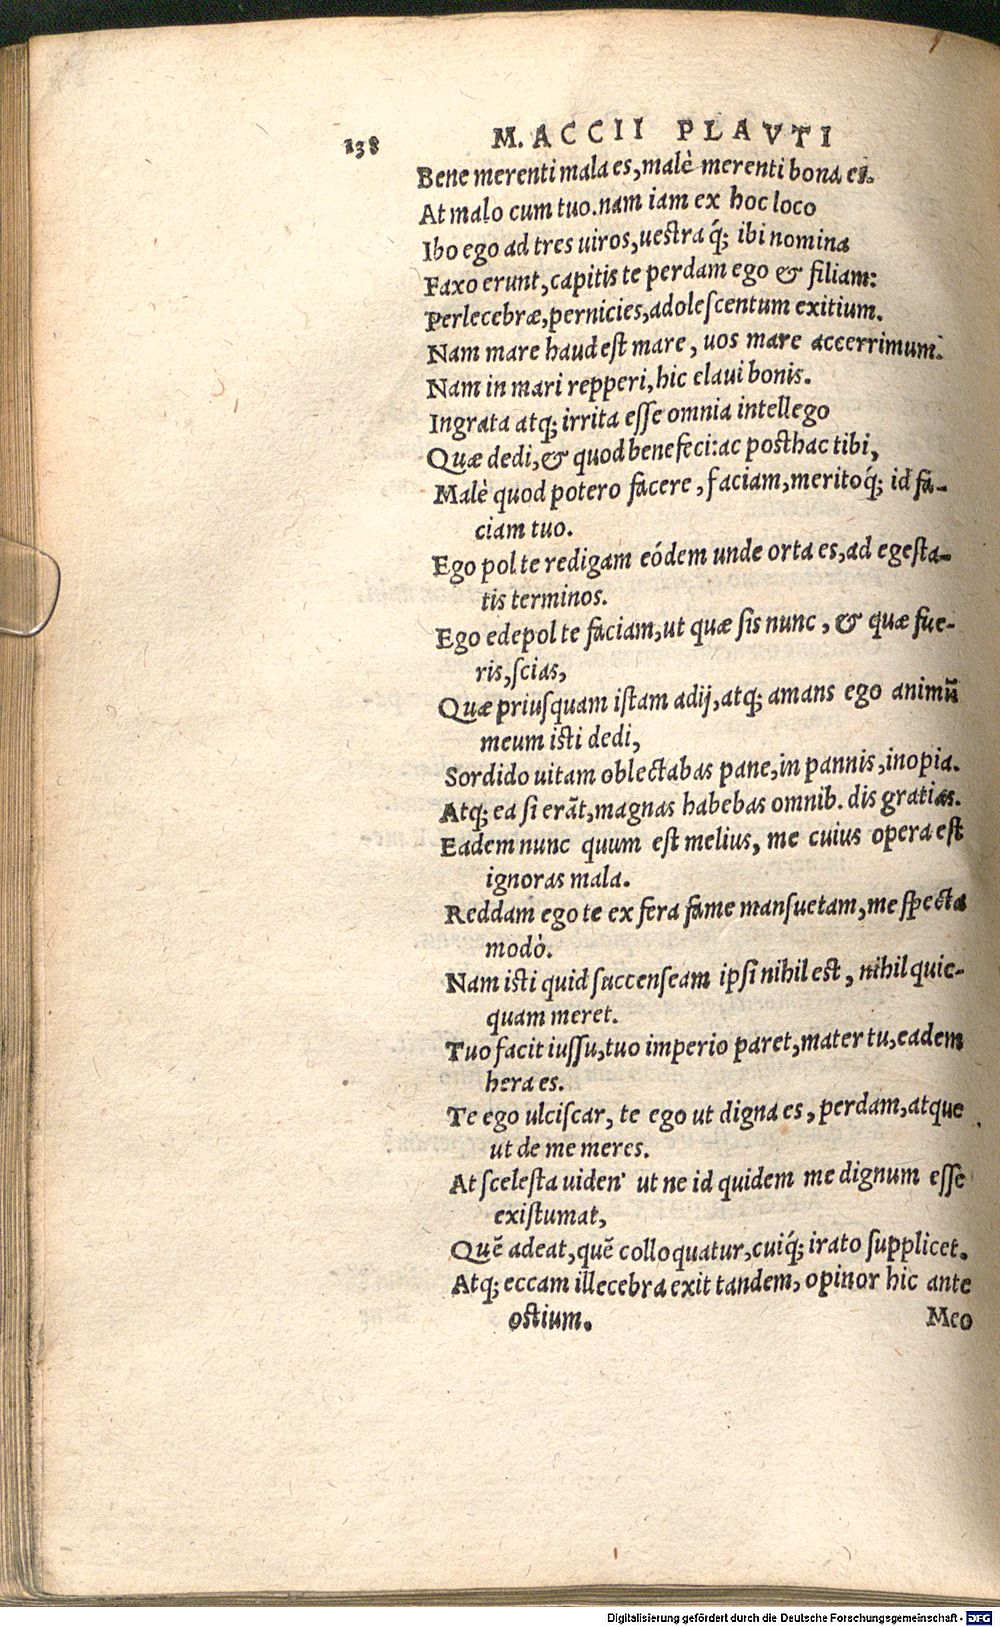 138 M. ACCII PLAVTI
Bene merenti mala es, malè merenti bona es.
At malo cum tuo. nam iam ex hoc loco
Ibo ego ad tres uiros, uestra q́; ibi nomina
Faxo erunt, capitis te perdam ego & filiam:
Perlecebræ, pernicies, adolescentum exitium.
Nam mare haud est mare, uos mare accerrimum:
Nam in mari repperi, hic elaui bonis.
Ingrata atq; irrita esse omnia intellego
Quæ dedi, & quod benefeci: ac posthac tibi,
Malè quod potero facere, faciam, meritoq́; id fa-
ciam tuo.
Ego pol te redigam eódem unde orta es, ad egesta-
tis terminos.
Ego edepol te faciam, ut quæ sis nunc, & quæ fue-
ris, scias,
Quæ priusquam istam adij, atq; amans ego animū
meum isti dedi,
Sordido uitam oblectabas pane, in pannis, inopia.
Atq; ea si erāt, magnas habebas omnib. dis gratias.
Eadem nunc quum est melius, me cuius opera est
ignoras mala.
Reddam ego te ex fera fame mansuetam, me specta
modò.
Nam isti quid succenseam ipsi nihil est, nihil quic-
quam meret.
Tuo facit iussu, tuo imperio paret, mater tu, eadem
hera es.
Te ego ulciscar, te ego ut digna es, perdam, atque
ut de me meres.
At scelesta uiden' ut ne id quidem me dignum esse
existumat,
Quē adeat, quē colloquatur, cuiq́; irato supplicet.
Atq; eccam illecebra exit tandem, opinor hic ante
ostium.
Meo
Digitalisierung gefördert durch die Deutsche Forschungsgemeinschaft - DFG